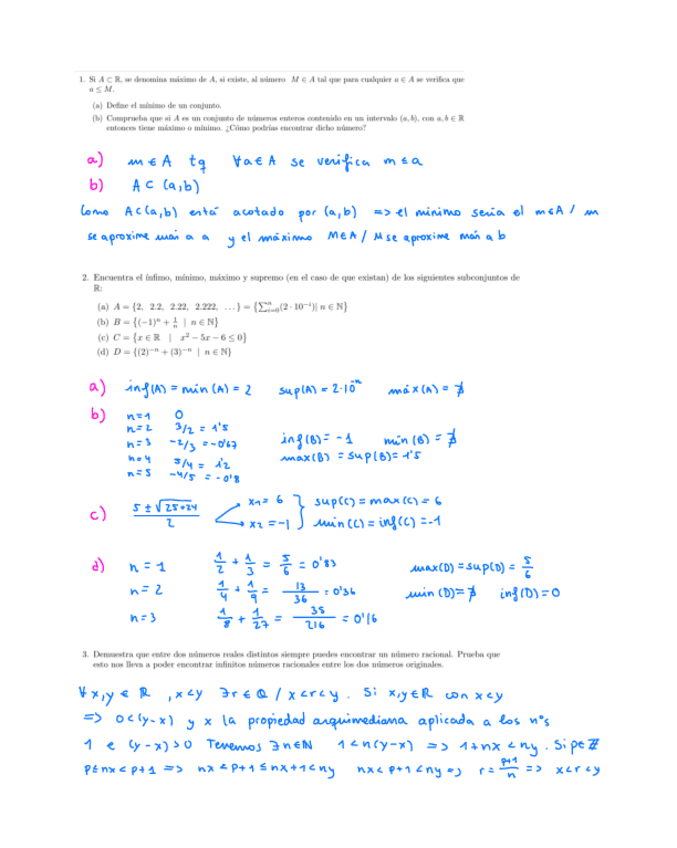 1. Si A ⊂ ℝ, se denomina máximo de A, si existe, al número M ∈ A tal que para cualquier a ∈ A se verifica que
a ≤ M.
(a) Define el mínimo de un conjunto.
(b) Comprueba que si A es un conjunto de números enteros contenido en un intervalo (a, b), con a, b ∈ ℝ
entonces tiene máximo o mínimo. ¿Cómo podrías encontrar dicho número?
a) m ∈ A tq ∀a ∈ A se verifica m ≤ a
b) A ⊂ (a,b)
Como A ⊂ (a,b) está acotado por (a,b) => el mínimo seria el m ∈ A / m
se aproxime más a a y el máximo M ∈ A / M se aproxime más a b
2. Encuentra el ínfimo, mínimo, máximo y supremo (en el caso de que existan) de los siguientes subconjuntos de
ℝ:
(a) A = {2, 2.2, 2.22, 2.222, ...} = {∑ⁿᵢ₌₀(2 · 10⁻ⁱ)| n ∈ ℕ}
(b) B = {(−1)ⁿ + 1/n | n ∈ ℕ}
(c) C = {x ∈ ℝ | x² − 5x − 6 ≤ 0}
(d) D = {(2)⁻ⁿ + (3)⁻ⁿ | n ∈ ℕ}
a) inf(A) = min(A) = 2 sup(A) = 2·10⁻ⁿ máx(A) = ∄
b) n=1 0
n=2 3/2 = 1'5
n=3 -2/3 = -0'67 inf(B) = -1 min(B) = ∄
n=4 5/4 = 1'2 max(B) = sup(B) = 1'5
n=5 -4/5 = -0'8
c) 5 ± √25+24 / 2 x1 = 6 x2 = -1 } sup(C) = max(C) = 6
min(C) = inf(C) = -1
d) n = 1 1/2 + 1/3 = 5/6 = 0'83 max(D) = sup(D) = 5/6
n = 2 1/4 + 1/9 = 13/36 = 0'36 min(D) = ∄ inf(D) = 0
n = 3 1/8 + 1/27 = 35/216 = 0'16
3. Demuestra que entre dos números reales distintos siempre puedes encontrar un número racional. Prueba que
esto nos lleva a poder encontrar infinitos números racionales entre los dos números originales.
∀x,y ∈ ℝ, x<y ∃r ∈ ℚ / x<r<y. Si x,y ∈ ℝ con x<y
=> 0<(y-x) y x la propiedad arquimediana aplicada a los nºs
1 e (y-x)>0 Tenemos ∃n∈ℕ 1<n(y-x) => 1+nx<ny. Si p∈ℤ
p≤nx<p+1 => nx<p+1≤nx+1<ny nx<p+1<ny => r = p+1/n => x<r<y